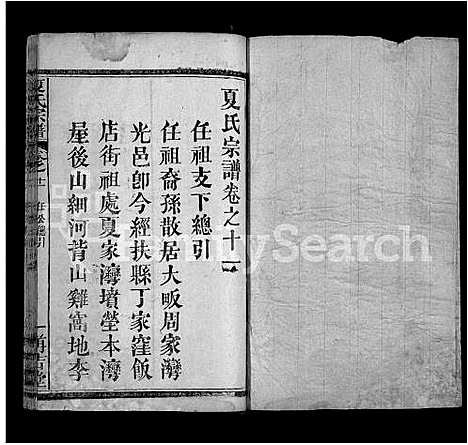 夏氏宗譜卷之十一
任祖支下總引
任祖裔孫散居大畈周家灣
光邑卽今經扶縣丁家窪飯
店街祖處夏家灣墳塋本灣
屋後山細河背山雞窩地李
夏氏宗譜
MySearch